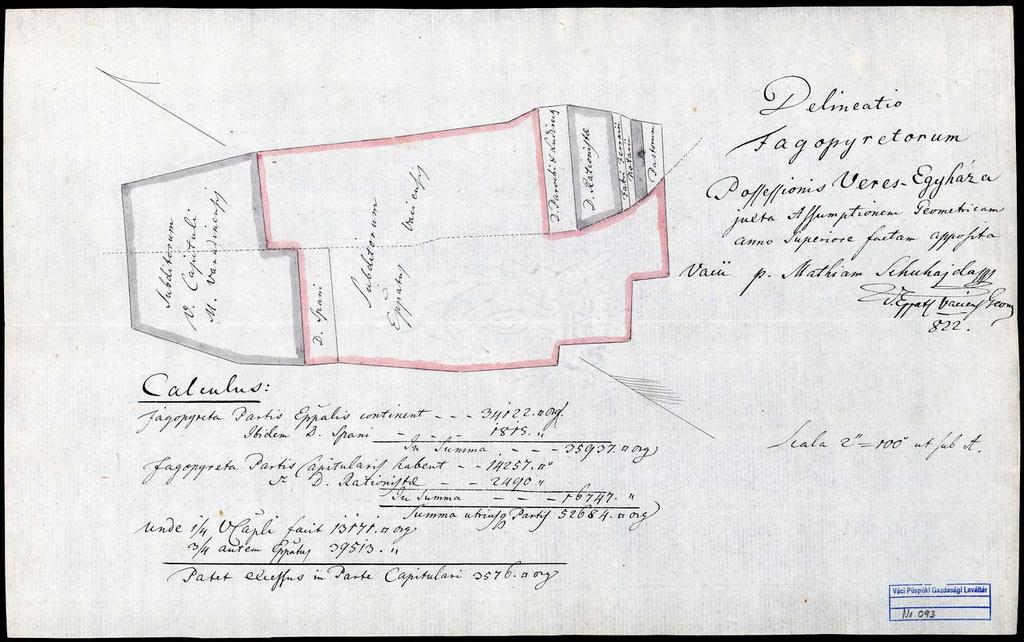 Delineatio
Fagopyretorum
Possessionis Veres-Egyháza
juxta Assumptionem Geometricam
anno Superiore factam apposita
Vacii p. Mathiam Schuhajda
Eppatq Vaciensq Geom
822.
Subditorum
V. Capituli
M. Varadiensis
D. Spani
Subditorum
Eppatus Vaciensis
D. Parochi & Ludirect
D. Rationistæ
Fabri Ferrarii
Notarii
Pastorum
Calculus:
Fagopyreta Partis Eppalis continent - - - 34122. □ org.
Ibidem D. Spani - - - 1815. "
In Summa - - - 35937. □ org
Fagopyreta Partis Capitularis habent - - 14257. □°
D. Rationistæ - - 2490 "
In Summa - - - 16747. "
Summa utriusq Partis 52684. □ org
Unde 1/4 V Capli facit 13171. □ org
3/4 autem Eppatus 39513. "
Patet excessus in Parte Capitulari 3576. □ org
Scala 2" = 100° ut sub A.
Váci Püspöki Gazdasági Levéltár
No. 093